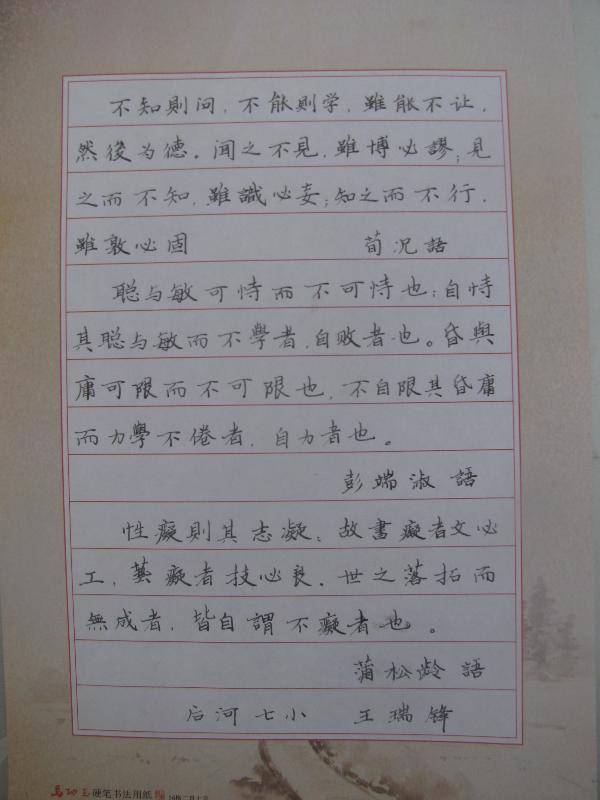 不知則问，不能則学，雖能不让，
然後为德。闻之不見，雖博必謬；見
之而不知，雖識必妄；知之而不行，
雖敦必困 荀况語
聪与敏可恃而不可恃也；自恃
其聪与敏而不學者，自败者也。昏與
庸可限而不可限也，不自限其昏庸
而力學不倦者，自力者也。
彭端淑語
性癡則其志凝；故書癡者文必
工，藝癡者技必良．世之落拓而
無成者，皆自謂不癡者也。
蒲松龄語
后河七小 王瑞锋
硬笔书法用纸